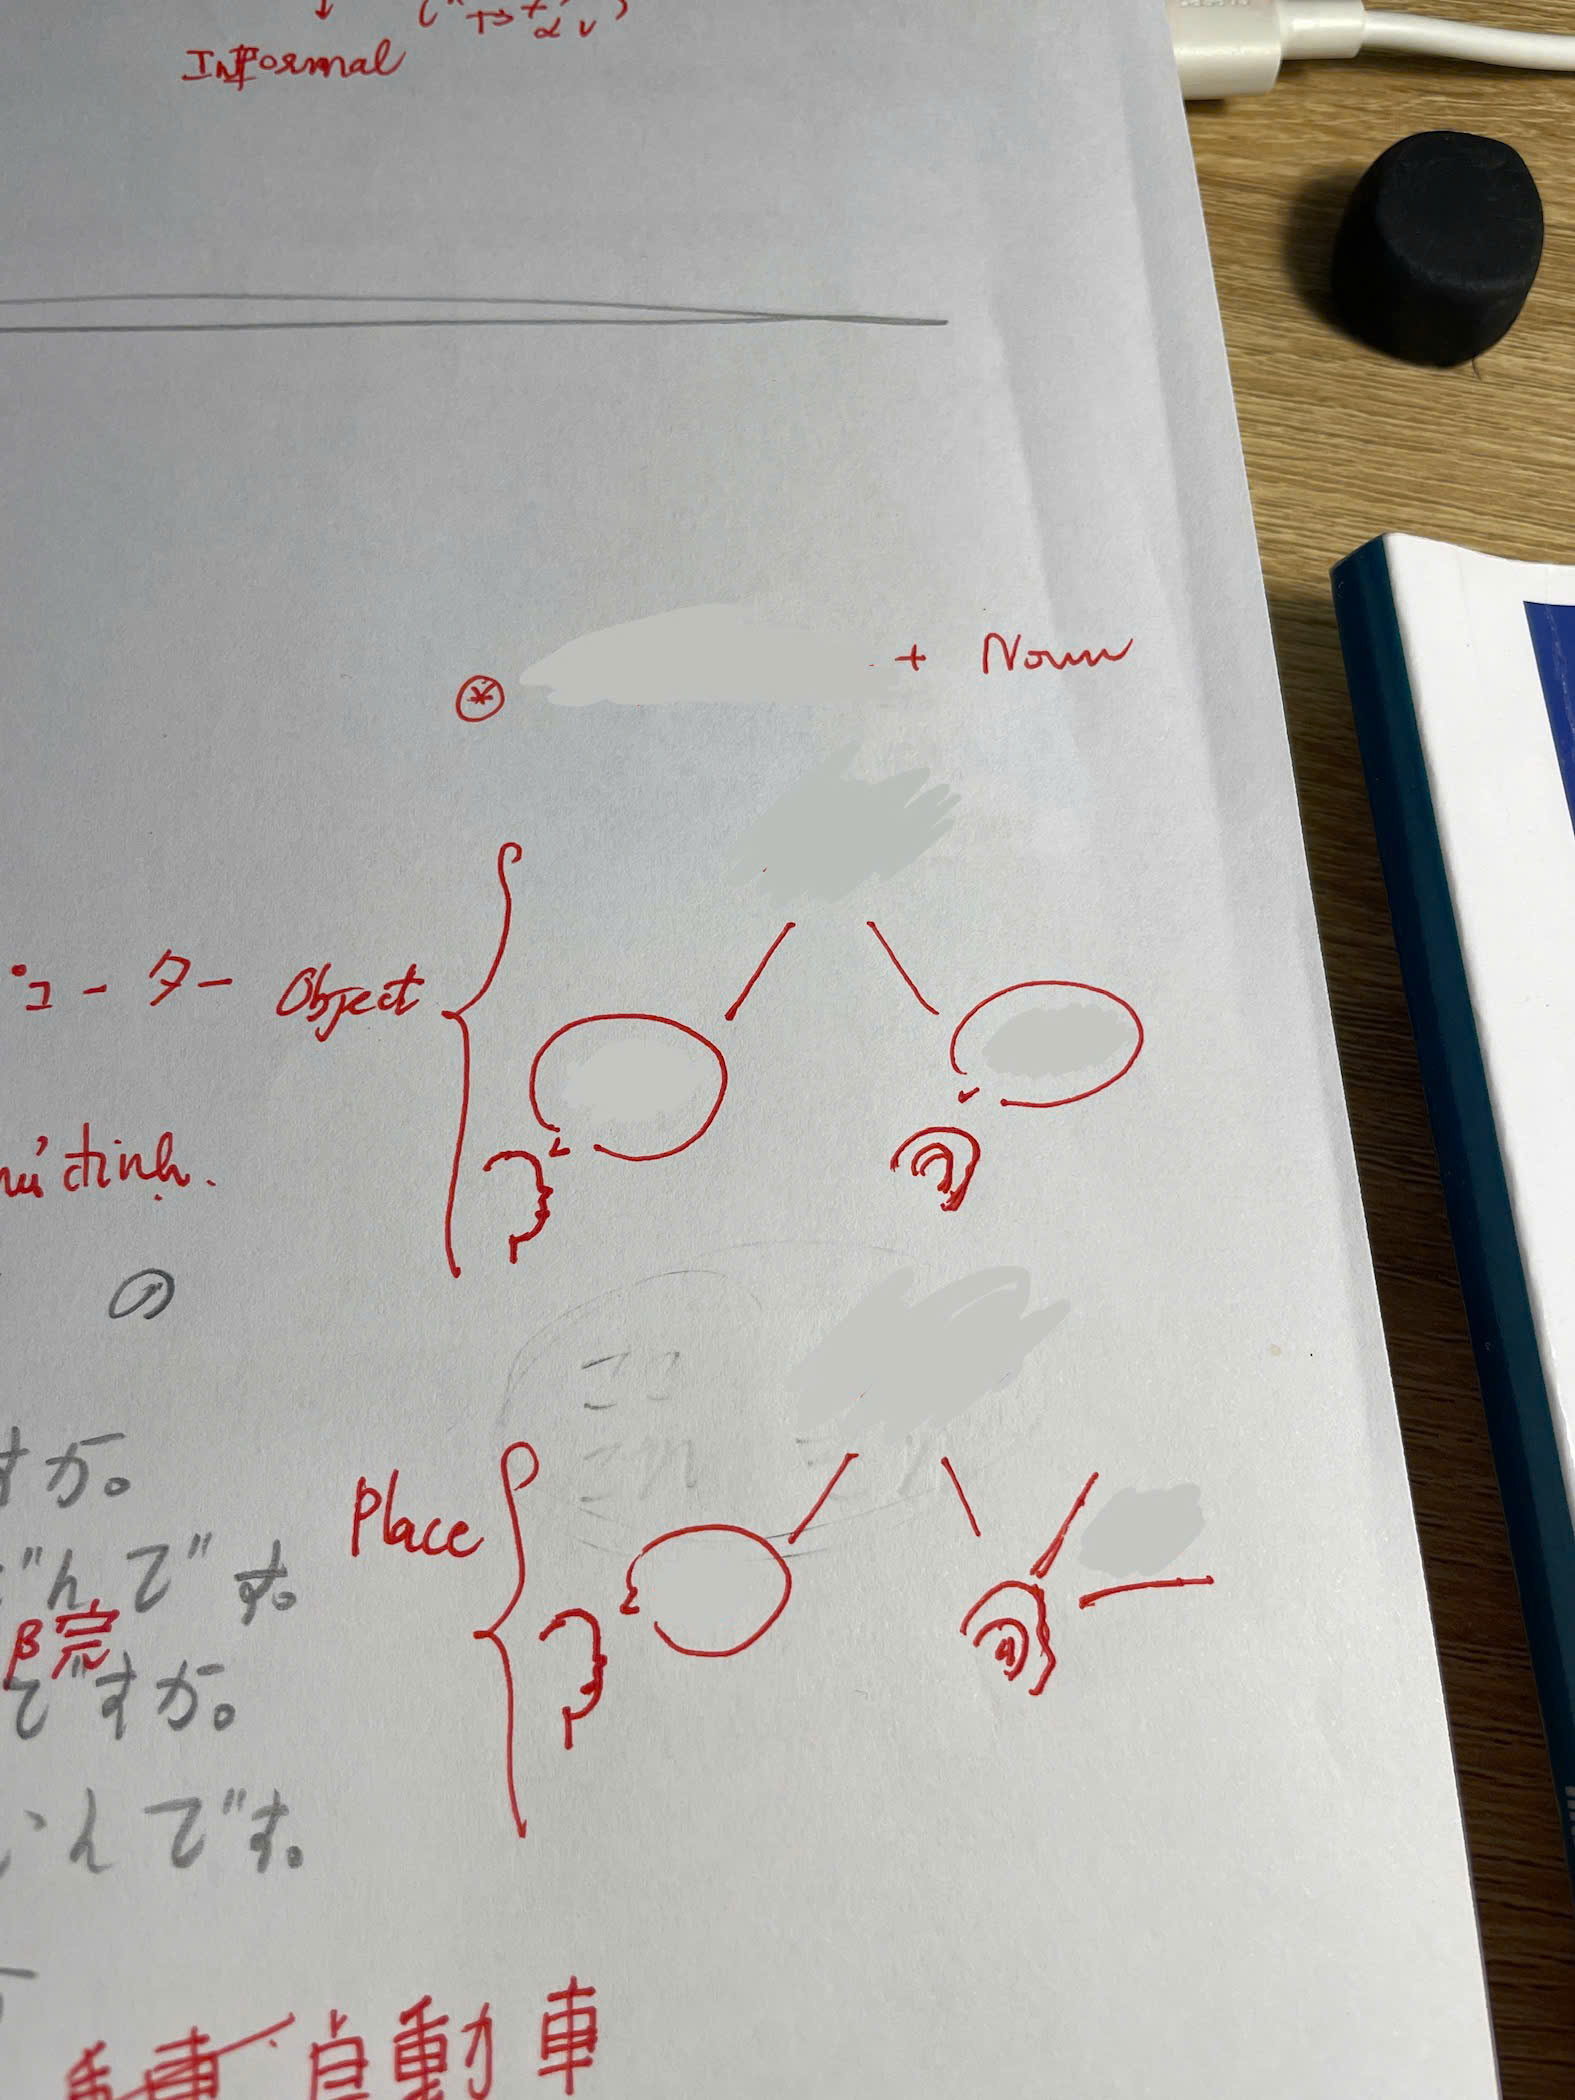 Informal
+ Noun
ューター Object
định.
の
ここ
これ これ
すか。
Place
んです。
院
ですか。
んです。
自動車